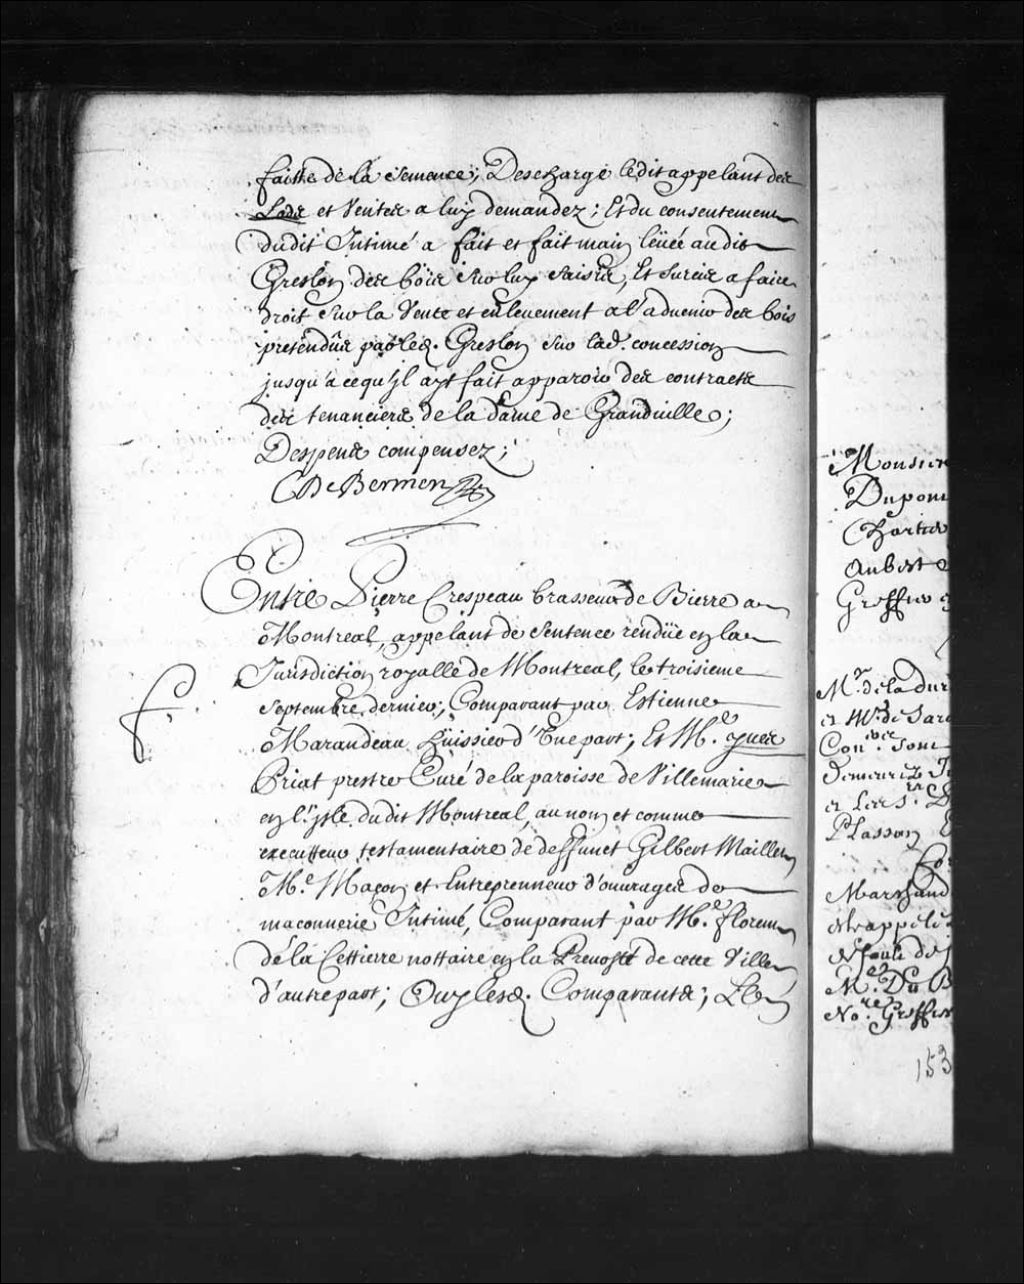 faitte de la semence; Deschargé ledit appelant des
Lods et Ventes a luy demandez; Et du consentement
dudit Intimé a fait et fait main leüée audit
Greslon des bois sur luy saisis, Et surcis a faire
droit sur la Vente et enleuement a l'aduenir des bois
pretendus par led. Greslon sur lad. concession
jusqu'a ce qu'jl ayt fait apparoir des contracts
des tenanciers de la dame de Granduille;
Despens compensez;
CDeBermen
Entre Pierre Crespeau brasseur de Bierre a
Montreal, appelant de sentence rendüe en la
Jurisdiction royalle de Montreal, le troisieme
septembre dernier, Comparant par Estienne
Marandeau huissier d'Vne part; Et Me. yues
Priat prestre Curé de la paroisse de Villemarie
en l'isle dudit Montreal, au nom et comme
executteur testamentaire de deffunct Gilbert Maillet
Me. Maçon et Entreprenneur d'ouurages de
maçonnerie Intimé, Comparant par Me. florent
de la Cettierre nottaire en la Preuosté de cette Ville
d'autre part; Ouy lesd. Comparants; Le
Monsieur
Dupont
Chartier
Aubert
Greffier
Mr. de la Dur
et Mr. de Sar
Coner. sont
et les Sr.
Plasson
Marchand
Me. Du B
No.re Greffier
153